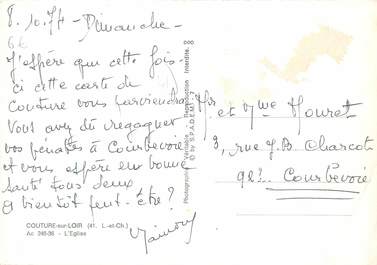 8.10.74 - Dimanche -
J'espère que cette fois-
ci cette carte de
Couture vous parviendra
Vous avez dû regagner
vos pénates à Courbevoie
et vous espère en bonne
santé tous deux
à bientôt peut-être ?
COUTURE-sur-LOIR (41. L.-et-Ch.)
Ac 246-36 - L'Eglise
Reproduction Interdite.
© by S.P.A.D.E.M.
Mr et Mme Mouret
3, rue J.B. Charcot
92. Courbevoie